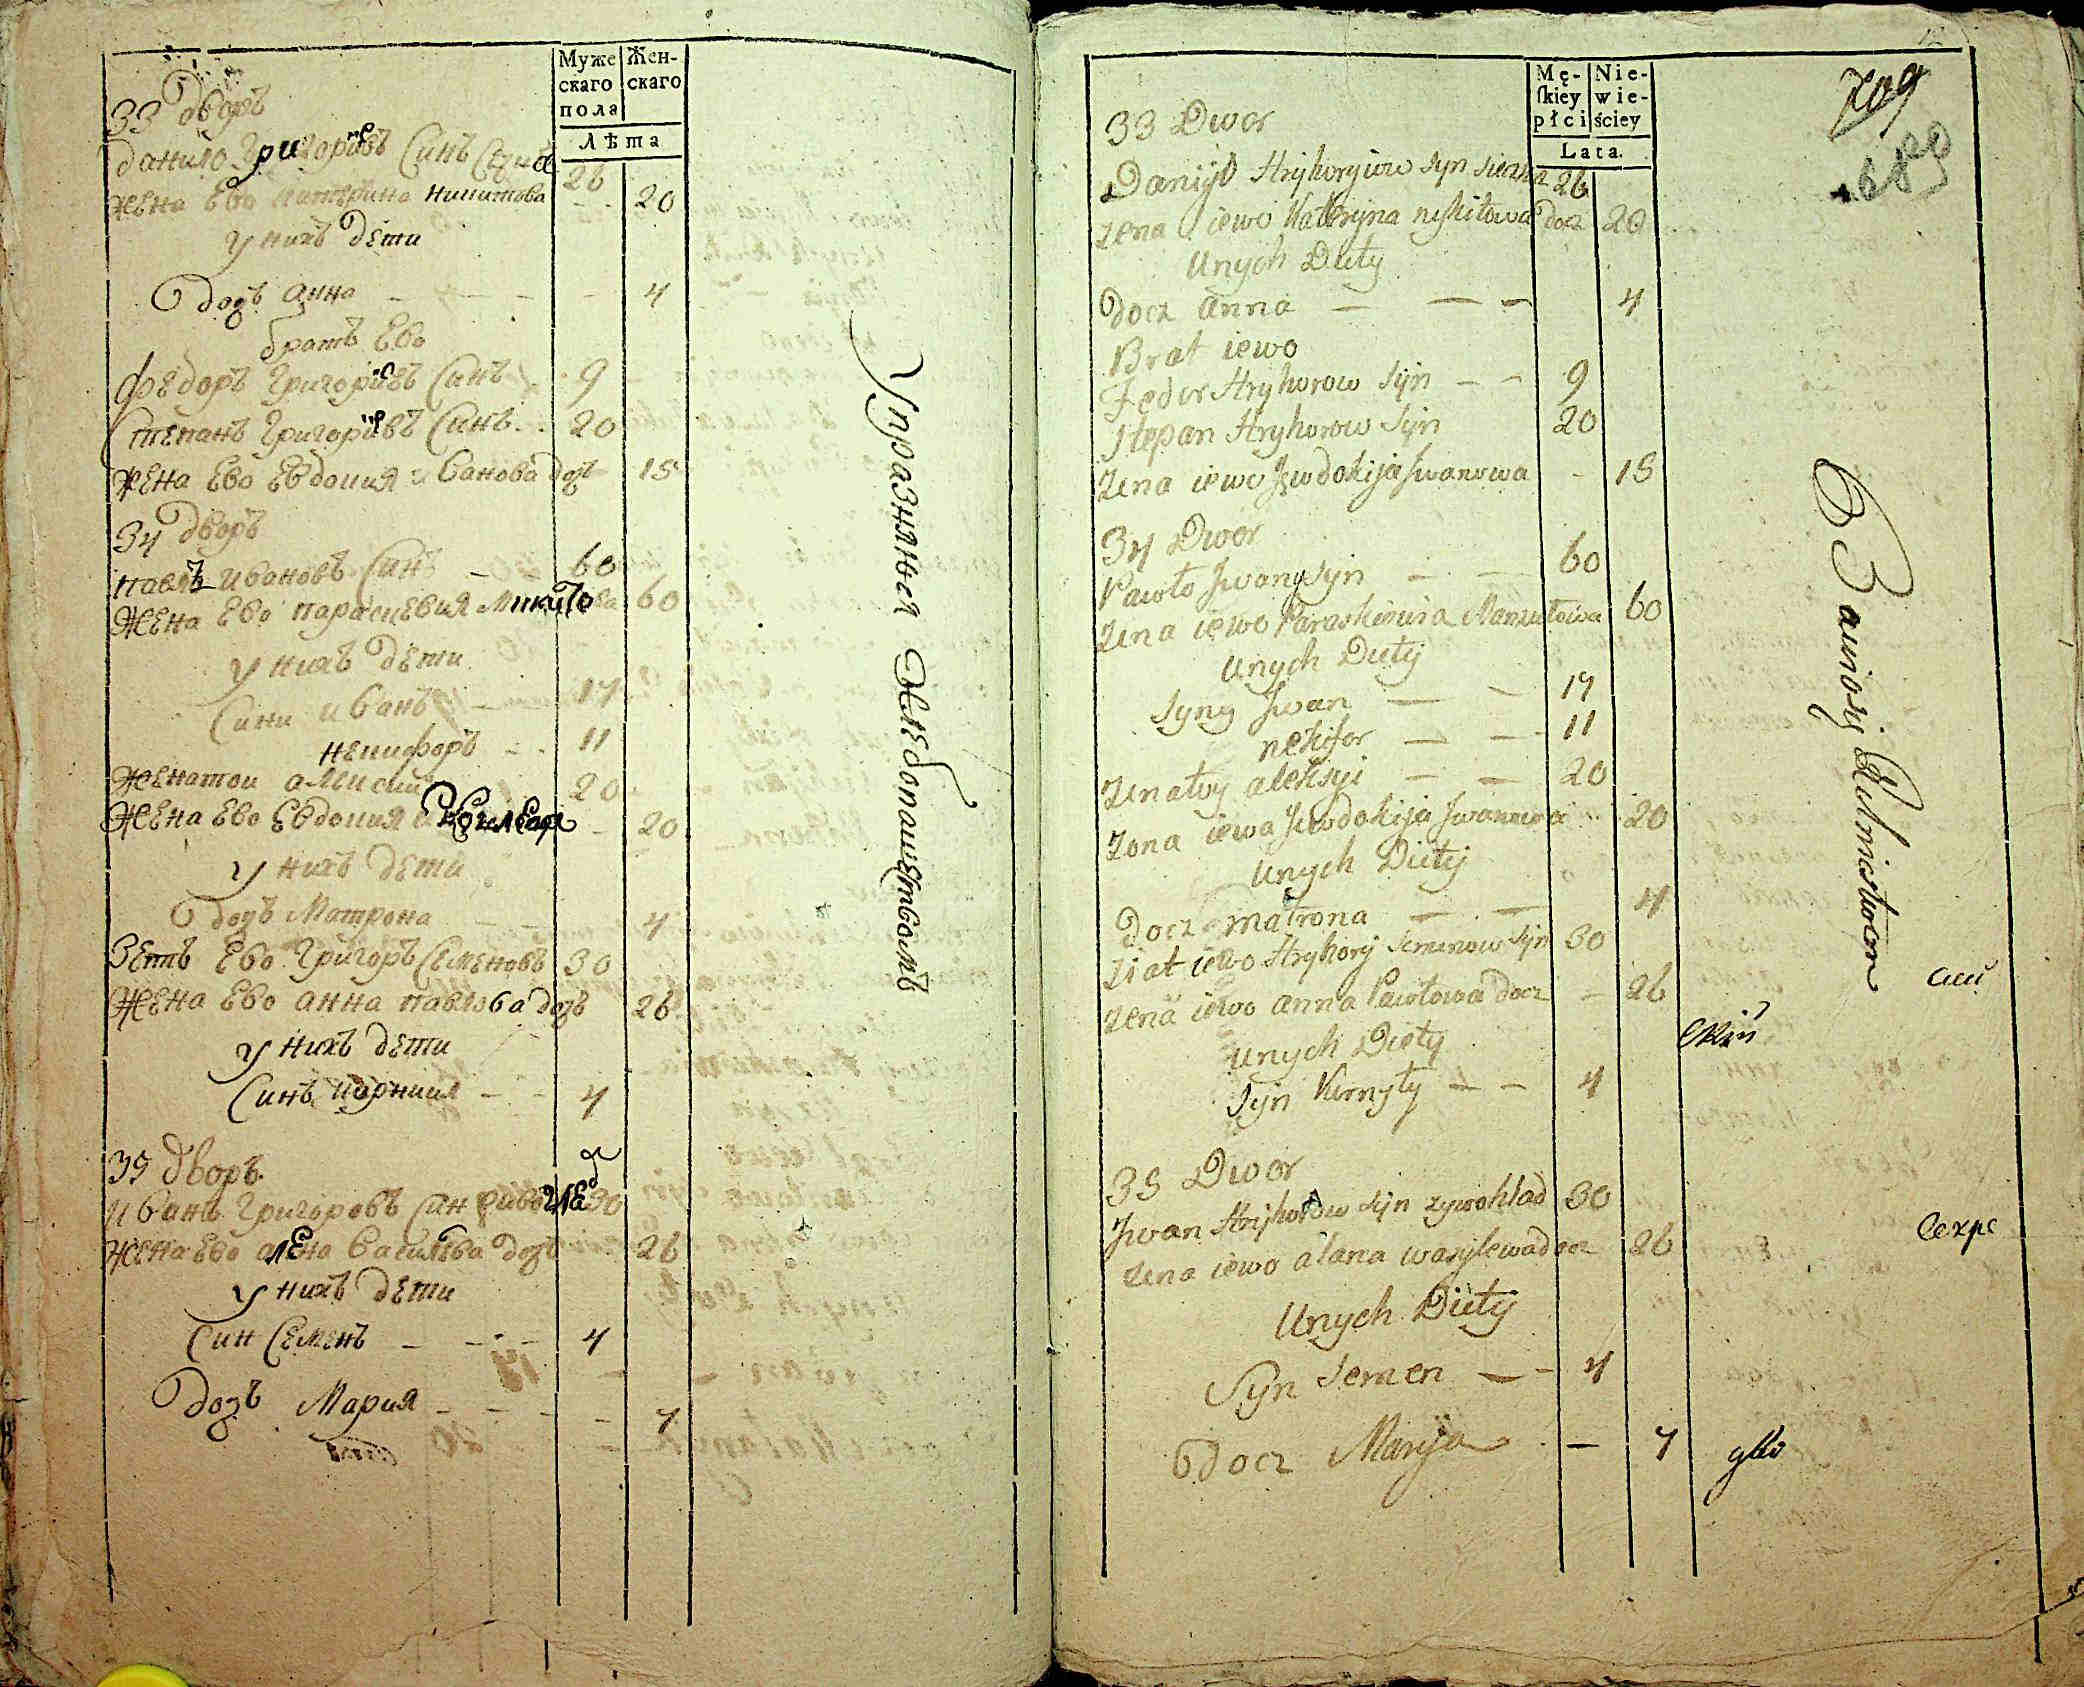 Муже
скаго
пола
Жен-
скаго
Лѣта
33 Дворъ
Данило Григориевъ Синъ
26
Жена Ево Катерина Никитова
20
У нихъ дети
Дочъ Анна - - - -
4
братъ Ево
Федоръ Григориевъ Синъ
9
Степанъ Григориевъ Синъ
20
Жена Ево Евдокия Иванова дочъ
15
34 Дворъ
Павелъ Ивановъ Синъ -
60
Жена Ево Параскевия
60
У нихъ дети
Сини Иванъ -
17
Некифоръ - -
11
Женатои Алиексии
20
Жена Ево Евдокия
20
У нихъ дети
Дочъ Матрона
4
Зеть Ево Григоръ Семеновъ
30
Жена Ево Анна Павлова дочъ
26
У нихъ дети
Синъ Корнила - -
4
35 Дворъ
Иванъ Григоровъ Син
30
Жена Ево Алена Василева дочъ
26
У нихъ дети
Син Семенъ - -
4
Дочъ Мария - - - -
7
Упразняныя
Mę-
skiey
płci
Nie-
wie-
ściey
Lata.
709
689
33 Dwor
Daniył Hryhoryiow Syn
26
Zena iewo Kateryna nykitowa docz
20
Unych Diety
Docz Anna — — —
4
Brat iewo
Fedor Hryhorow Syn — —
9
Stepan Hryhorow Syn
20
Zena iewo Jewdokija Jwanowa -
15
34 Dwor
Pawło Jwanysyn — —
60
Zena iewo Paraskiewia
60
Unych Diety
Syny Jwan — —
17
nekifor — —
11
Zenatvy aleksyi — —
20
Zona iewa Jewdokija Jwanowa
20
Unych Diety
Docz matrona — —
4
Ziat iewo Hryhory Semenow Syn
30
Zena iewo anna Pawłowa docz -
26
Unych Diety
Syn Kornyły — —
4
35 Dwor
Jwan Hryhorow Syn zywohlad
30
Zena iewo alana wasylewa docz
26
Unych Diety
Syn Semen — —
4
Docz Maryja —
7